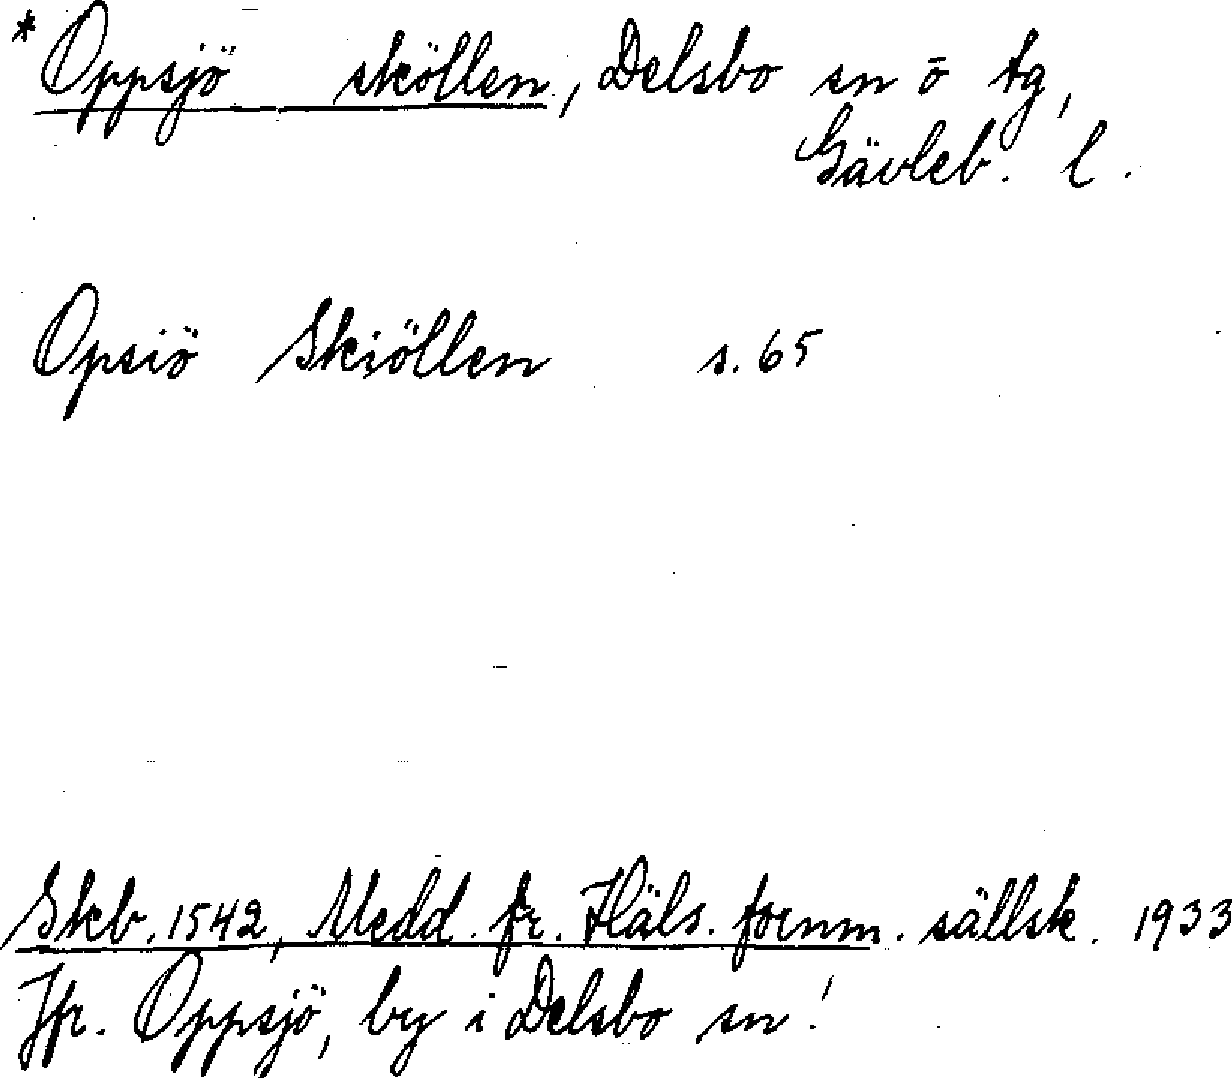 *Oppsjö sköllen, Delsbo sn o tg,
Gävleb. l.
Opsiö Skiöllen s. 65
Skb. 1542, Medd. fr. Häls. fornm. sällsk. 1933
Jfr. Oppsjö, by i Delsbo sn!